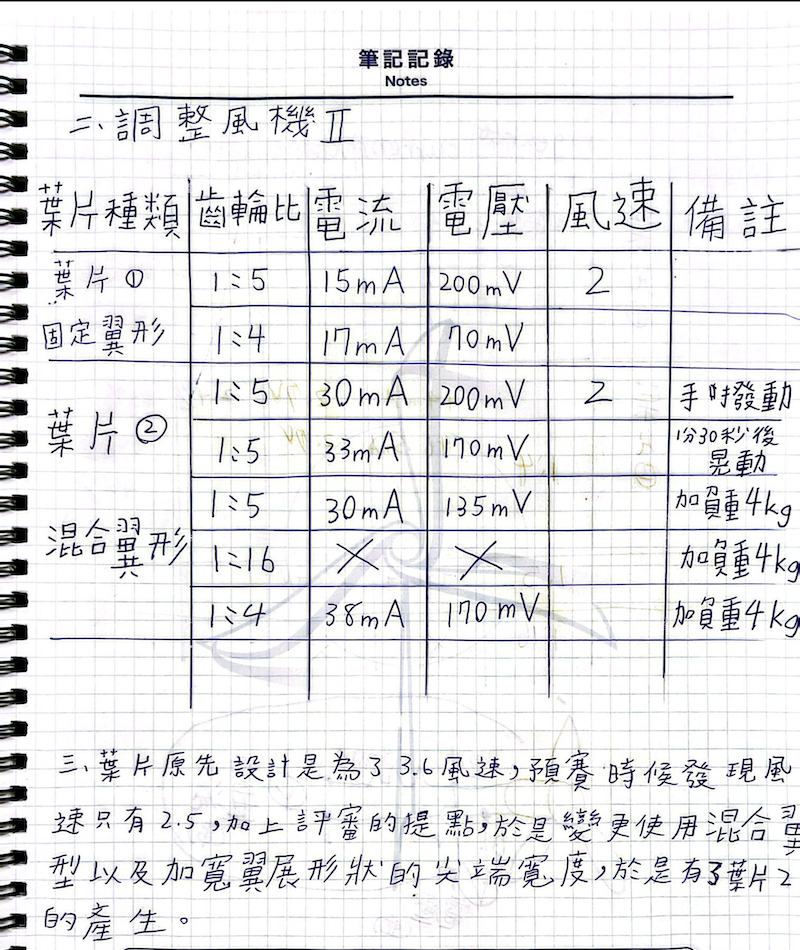 筆記記錄
Notes
二、調整風機Ⅱ
葉片種類 齒輪比 電流 電壓 風速 備註
葉片① 1:5 15mA 200mV 2
固定翼形 1:4 17mA 70mV
1:5 30mA 200mV 2 手吋發動
葉片② 1:5 33mA 170mV 1分30秒後晃動
1:5 30mA 135mV 加負重4kg
混合翼形 1:16 X X 加負重4kg
1:4 38mA 170mV 加負重4kg
三、葉片原先設計是為了3.6風速,預賽時候發現風
速只有2.5,加上評審的提點,於是變更使用混合翼
型以及加寬翼展形狀的尖端寬度,於是有了葉片2
的產生。